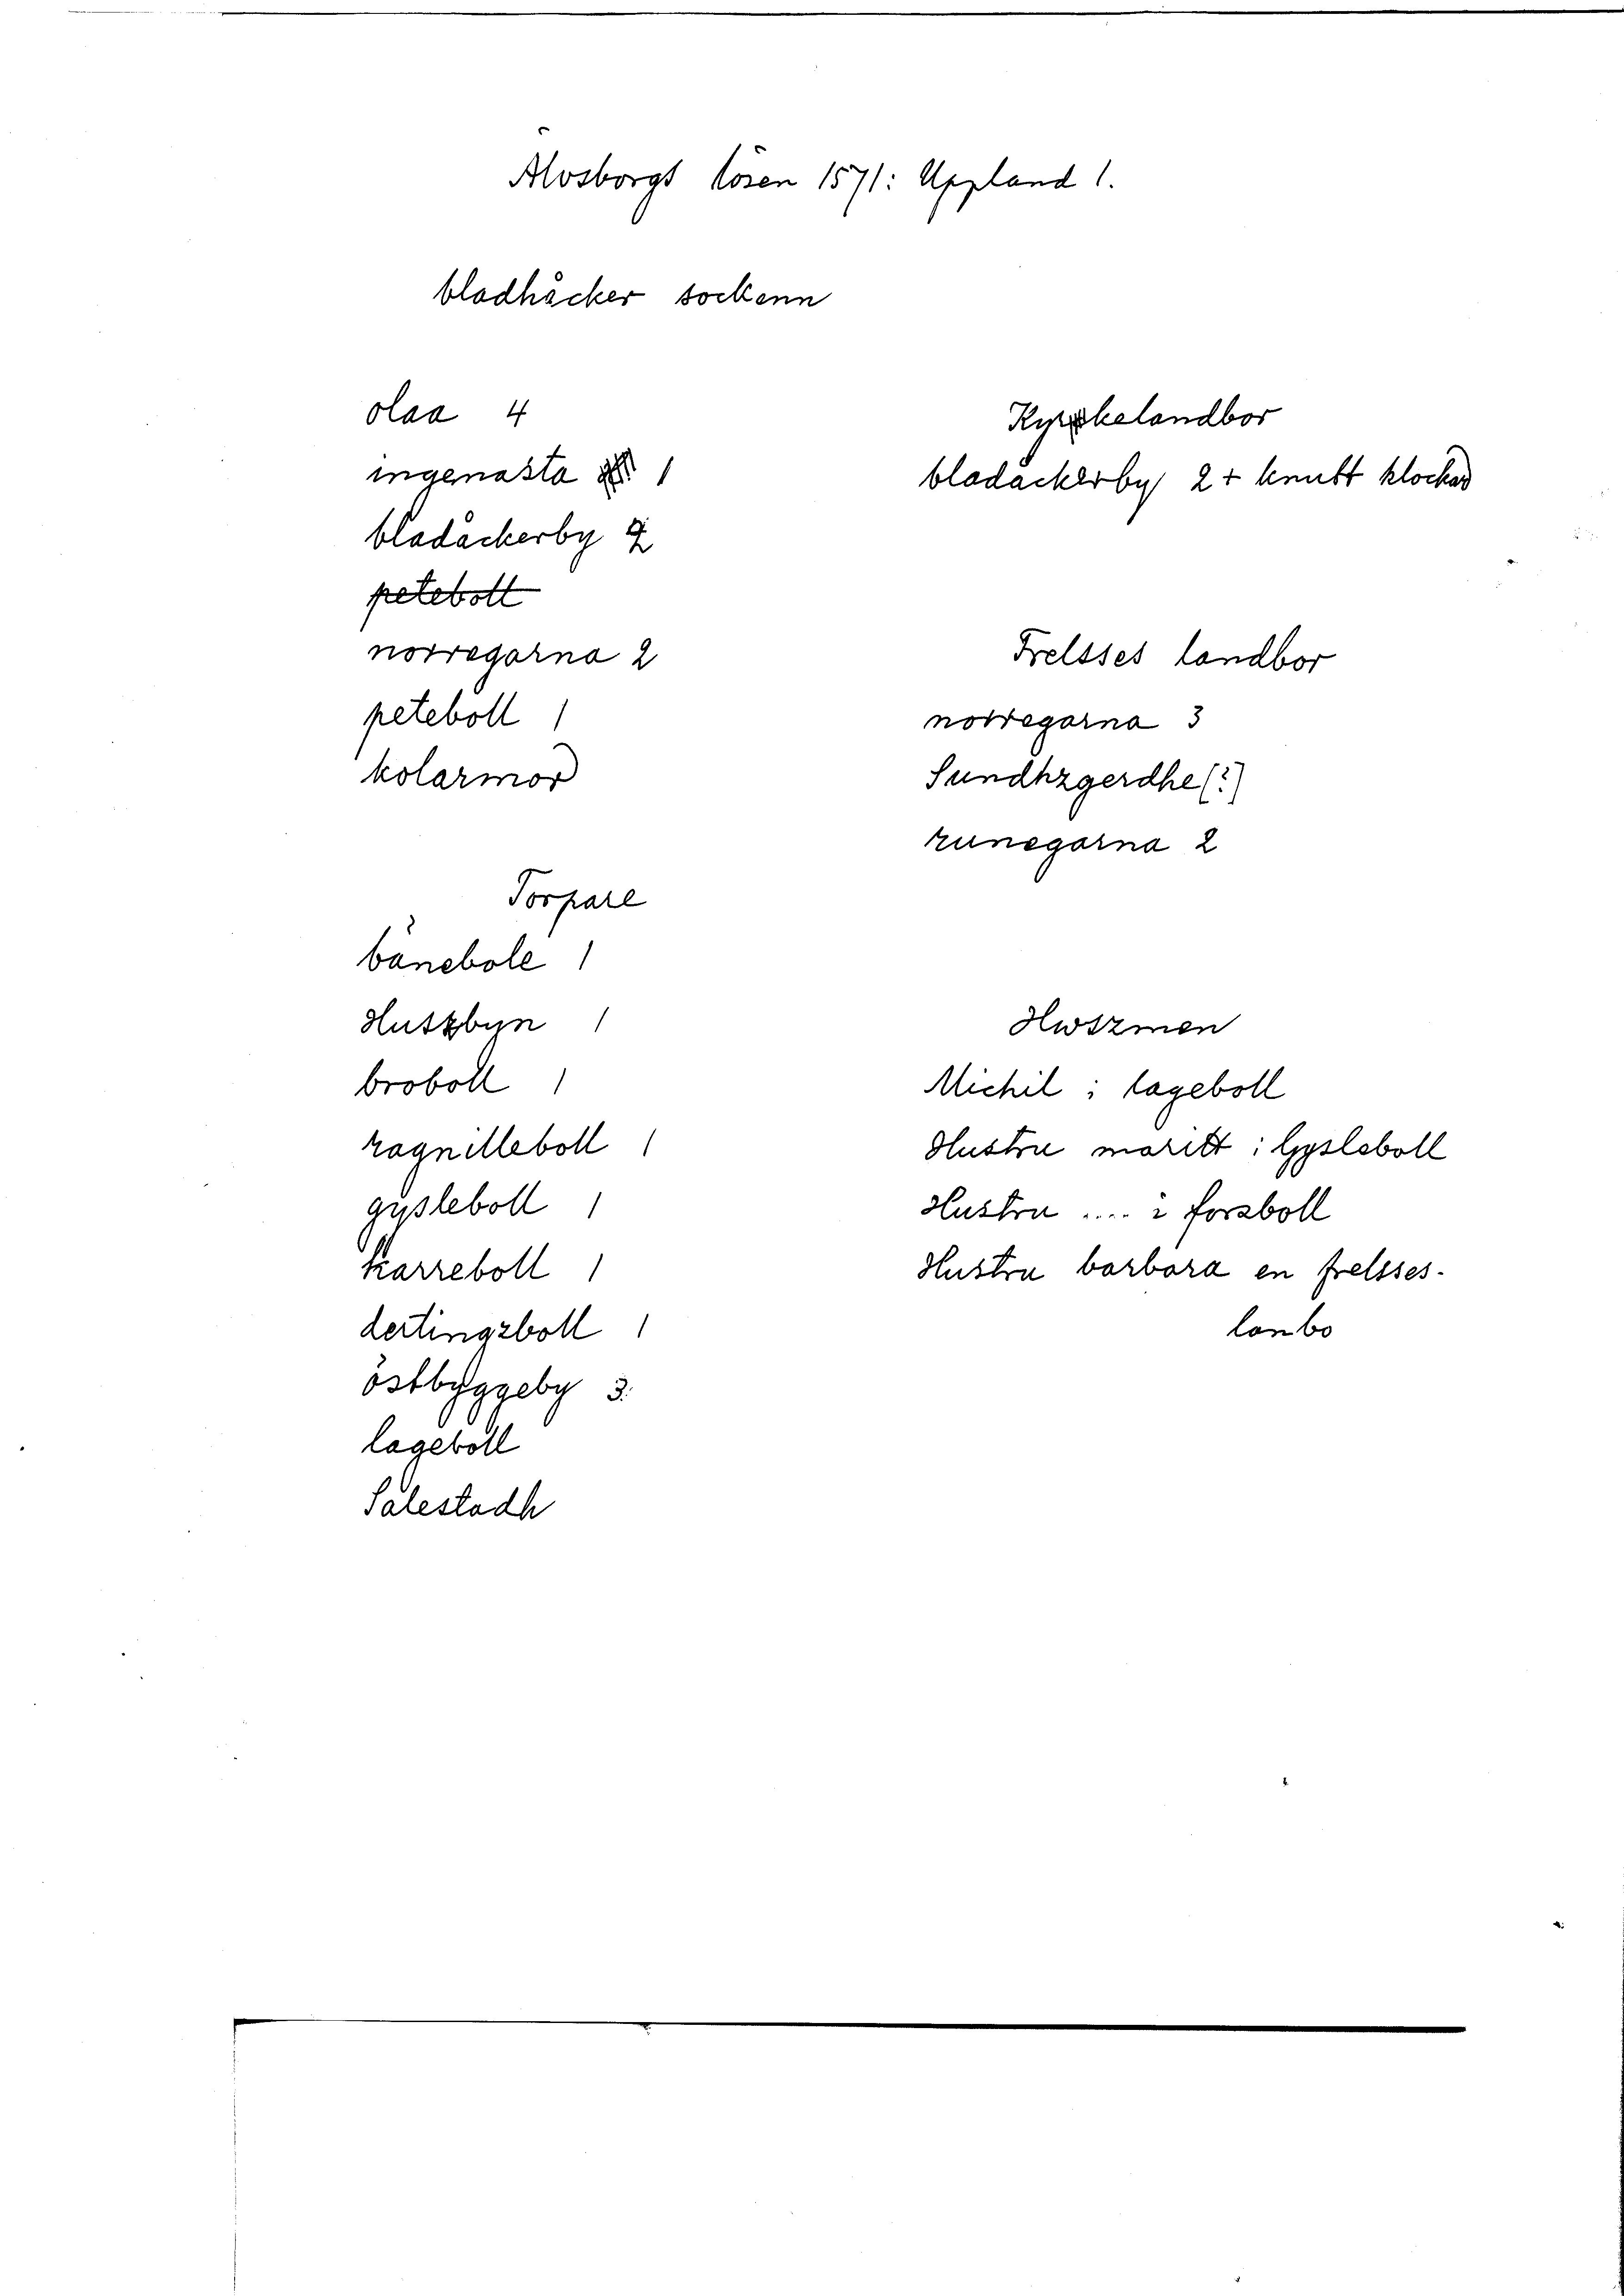 Älvsborgs lösen 1571: Uppland 1.
bladhåcker sockenn
olaa 4
ingenasta 1
bladåckerby 2
peteboll
norregarna 2
peteboll 1
kolarmor
Torpare
bänebole 1
Hutzbyn 1
broboll 1
ragnilleboll 1
gysleboll 1
karreboll 1
dertingzboll 1
östbyggeby 3
lageboll
Salestadh
Kyrkelandbor
bladåckerby 2 + knutt klockar
Frelsses landbor
norregarna 3
Sundhzgerdhe (?)
runegarna 2
Hwszmen
Michil i lageboll
Hustru maritt i Gysleboll
Hustru .... i forsboll
Hustru barbara en frelsses-
lanbo